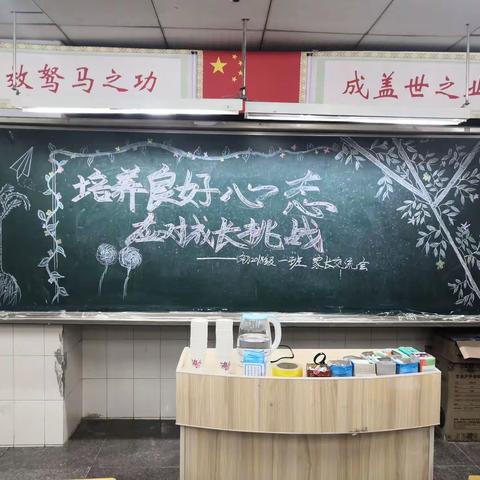 效驽马之功
成盖世之业
培养良好心态
应对成长挑战
——初2021级一班 家长交流会